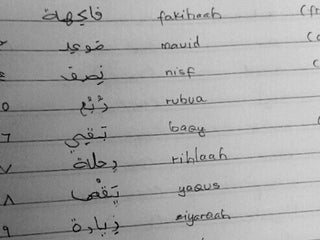 فاكهة fakihaah (fr
موعد mauid
نصف nisf
٥ رُبُع rubua
٦ تبقي baqy
٧ رحلة rihlaah
٨ يَقُصُّ yaqus
٩ زيارة ziyaraah